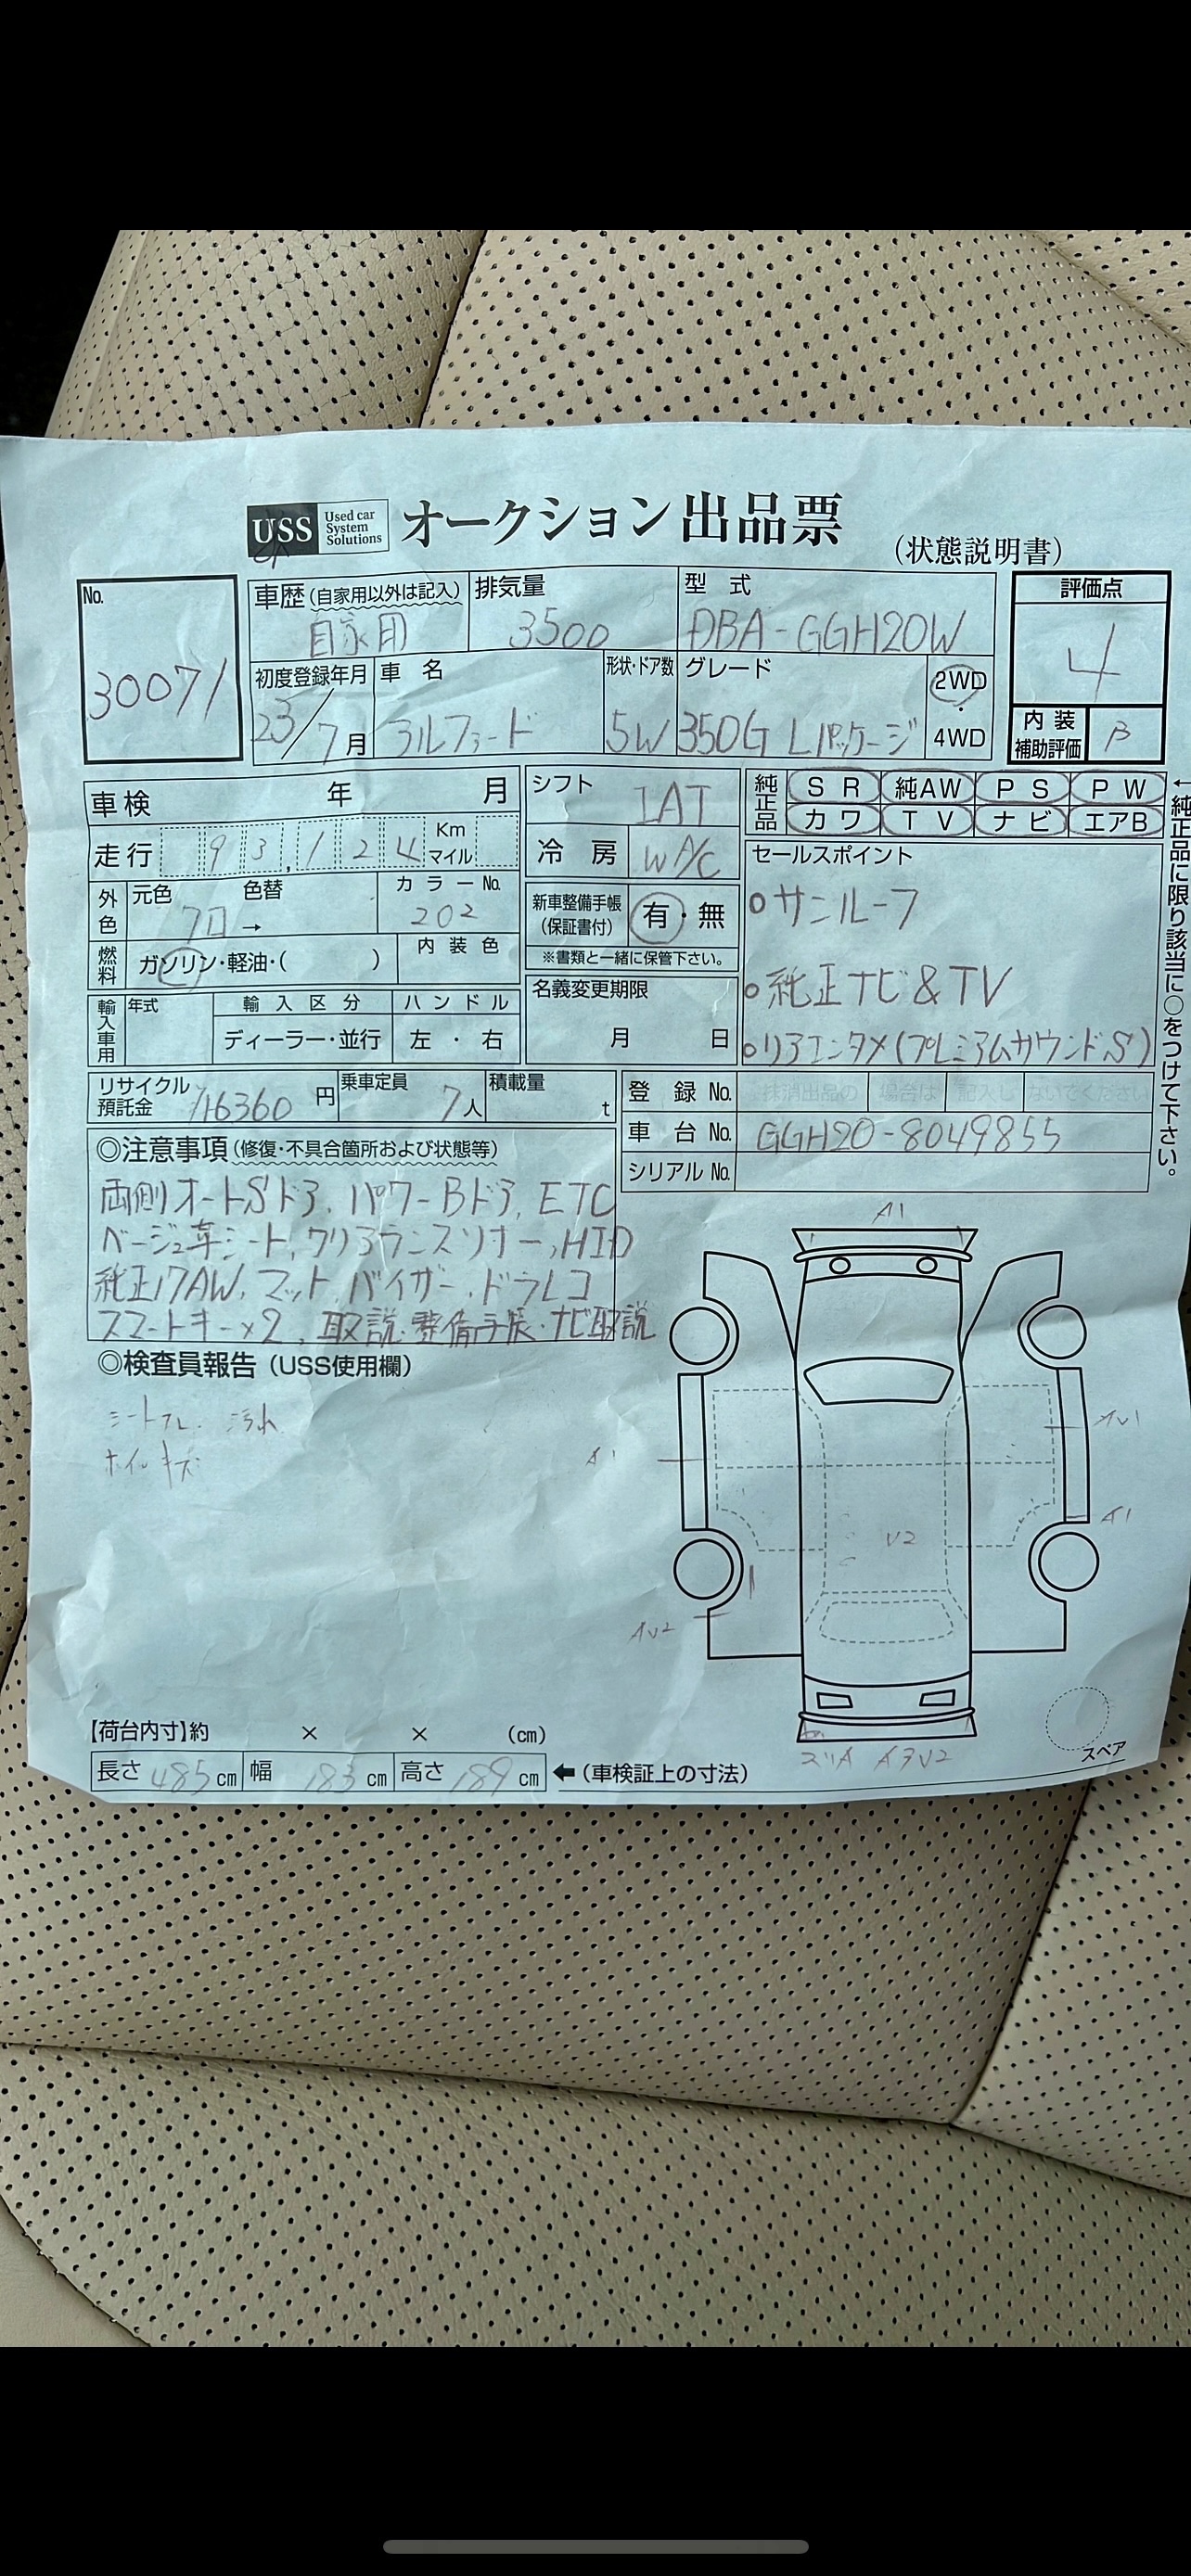 USS Used car System Solutions オークション出品票
(状態説明書)
No. 30071
車歴(自家用以外は記入) 自家用
排気量 3500
型式 DBA-GGH20W
評価点 4
初度登録年月 23/7月
車名 アルファード
形状・ドア数 5W
グレード 350G Lパッケージ
2WD・4WD
内装補助評価 B
車検 年 月
シフト IAT
純正品 SR 純AW PS PW
カワ TV ナビ エアB
走行 93,124 Km マイル
冷房 WA/C
セールスポイント
○サンルーフ
○純正ナビ&TV
○リアエンタメ(プレミアムサウンドS)
←純正品に限り該当に○をつけて下さい。
外色 元色 クロ → 色替
カラーNo. 202
新車整備手帳(保証書付) 有・無
※書類と一緒に保管下さい。
燃料 ガソリン・軽油・( )
内装色
輸入車用 年式
輸入区分 ディーラー・並行
ハンドル 左・右
名義変更期限 月 日
リサイクル預託金 16360円
乗車定員 7人
積載量 t
登録No. 抹消出品の 場合は 記入し ないでください
車台No. GGH20-8049855
シリアルNo.
◎注意事項(修復・不具合箇所および状態等)
両側オートSドア、パワーBドア、ETC
ベージュ革シート、クリアランスソナー、HID
純正17AW、マット、バイザー、ドラレコ
スマートキー×2、取説・整備手帳・ナビ取説
◎検査員報告(USS使用欄)
シートスレ. 汚れ
ホイルキズ
A1
AU1
A1
A1
U2
AU2
スリA
スペア
【荷台内寸】約 × × (cm)
長さ 485cm 幅 183cm 高さ 189cm ←(車検証上の寸法)